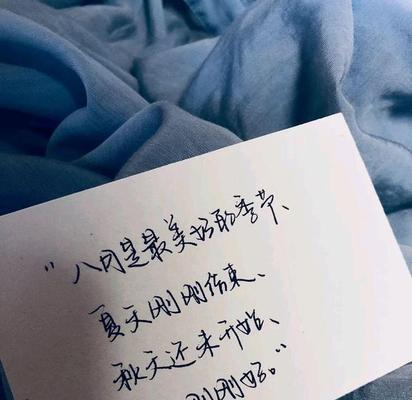 “八月是最美好的季节、
夏天刚刚结束、
秋天还未开始、
刚刚好。”